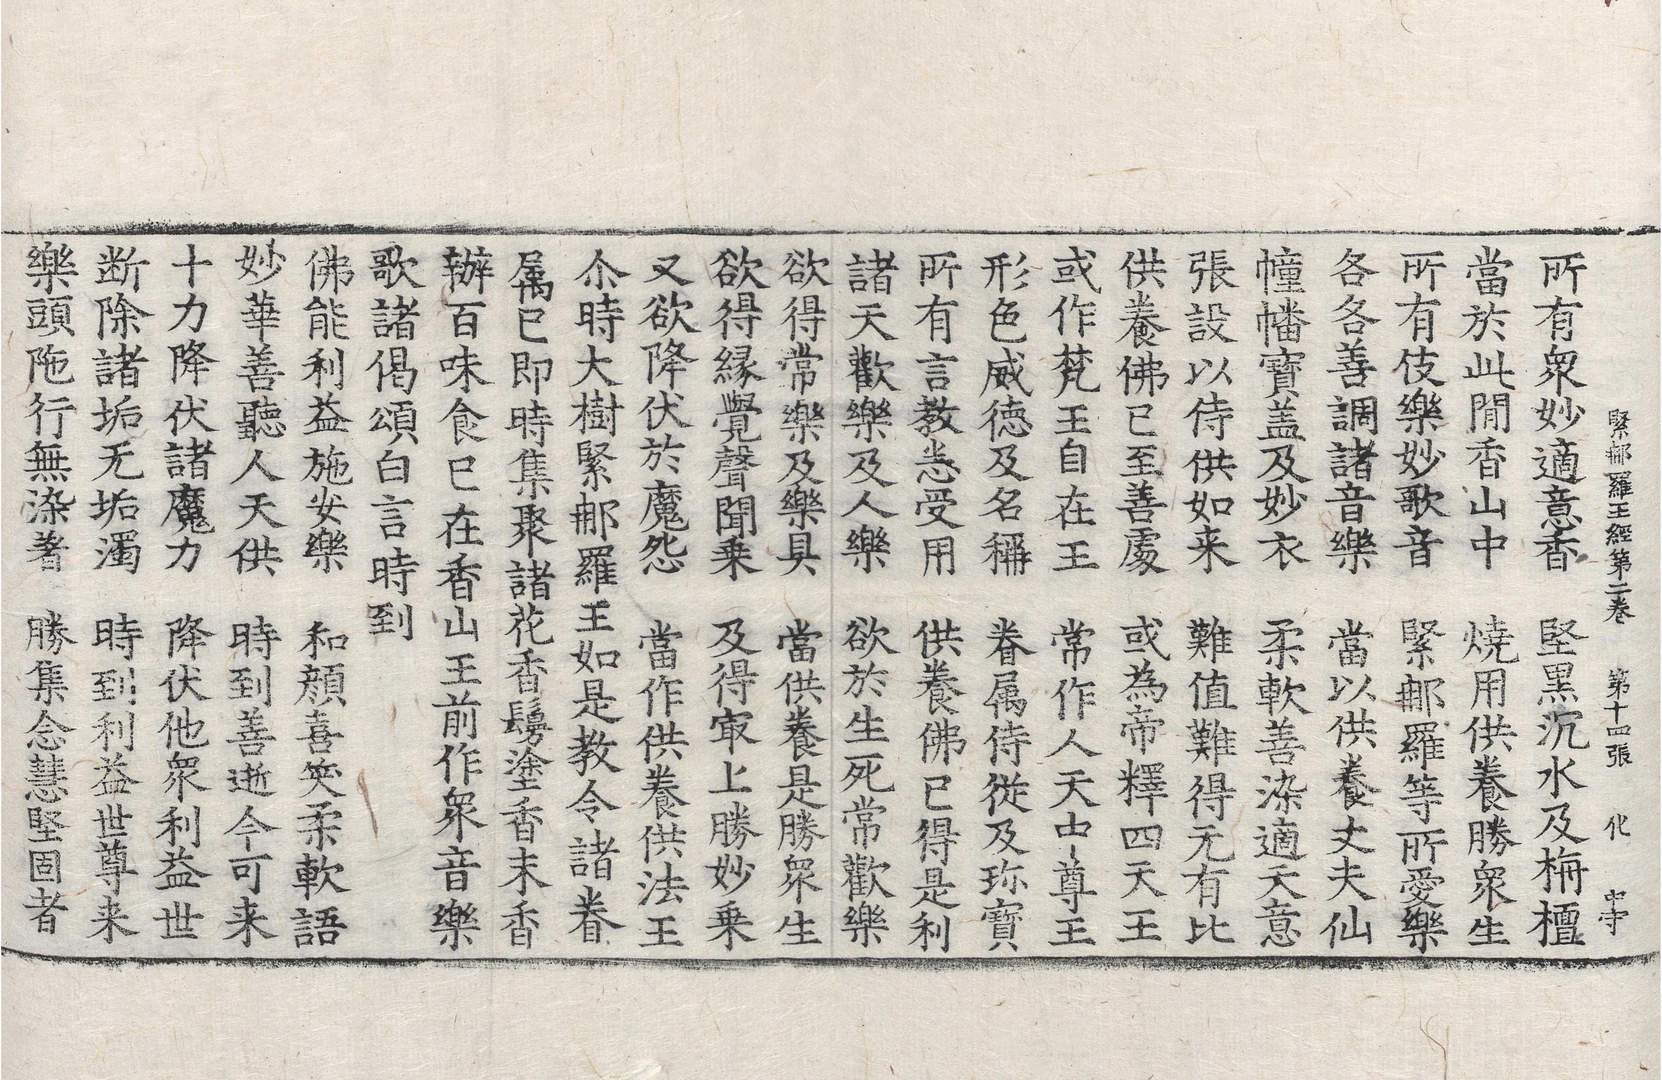 緊那羅王經第二卷　第十四張　化　中守
所有衆妙適意香　堅黒沉水及栴檀
當於此閒香山中　燒用供養勝衆生
所有伎樂妙歌音　緊那羅等所愛樂
各各善調諸音樂　當以供養丈夫仙
幢幡寶盖及妙衣　柔軟善染適天意
張設以侍供如来　難值難得无有比
供養佛已至善處　或為帝釋四天王
或作梵王自在王　常作人天中尊王
形色威德及名稱　眷属侍從及珎寶
所有言教悉受用　供養佛已得是利
諸天歡樂及人樂　欲於生死常歡樂
欲得常樂及樂具　當供養是勝衆生
欲得縁覺聲聞乗　及得㝡上勝妙乗
又欲降伏於魔怨　當作供養供法王
尒時大樹緊那羅王如是教令諸眷
属已即時集聚諸花香鬘塗香末香
辦百味食已在香山王前作衆音樂
歌諸偈頌白言時到
佛能利益施安樂　和顔喜笑柔軟語
妙華善聽人天供　時到善逝今可来
十力降伏諸魔力　降伏他衆利益世
断除諸垢无垢濁　時到利益世尊来
樂頭陁行無染著　勝集念慧堅固者